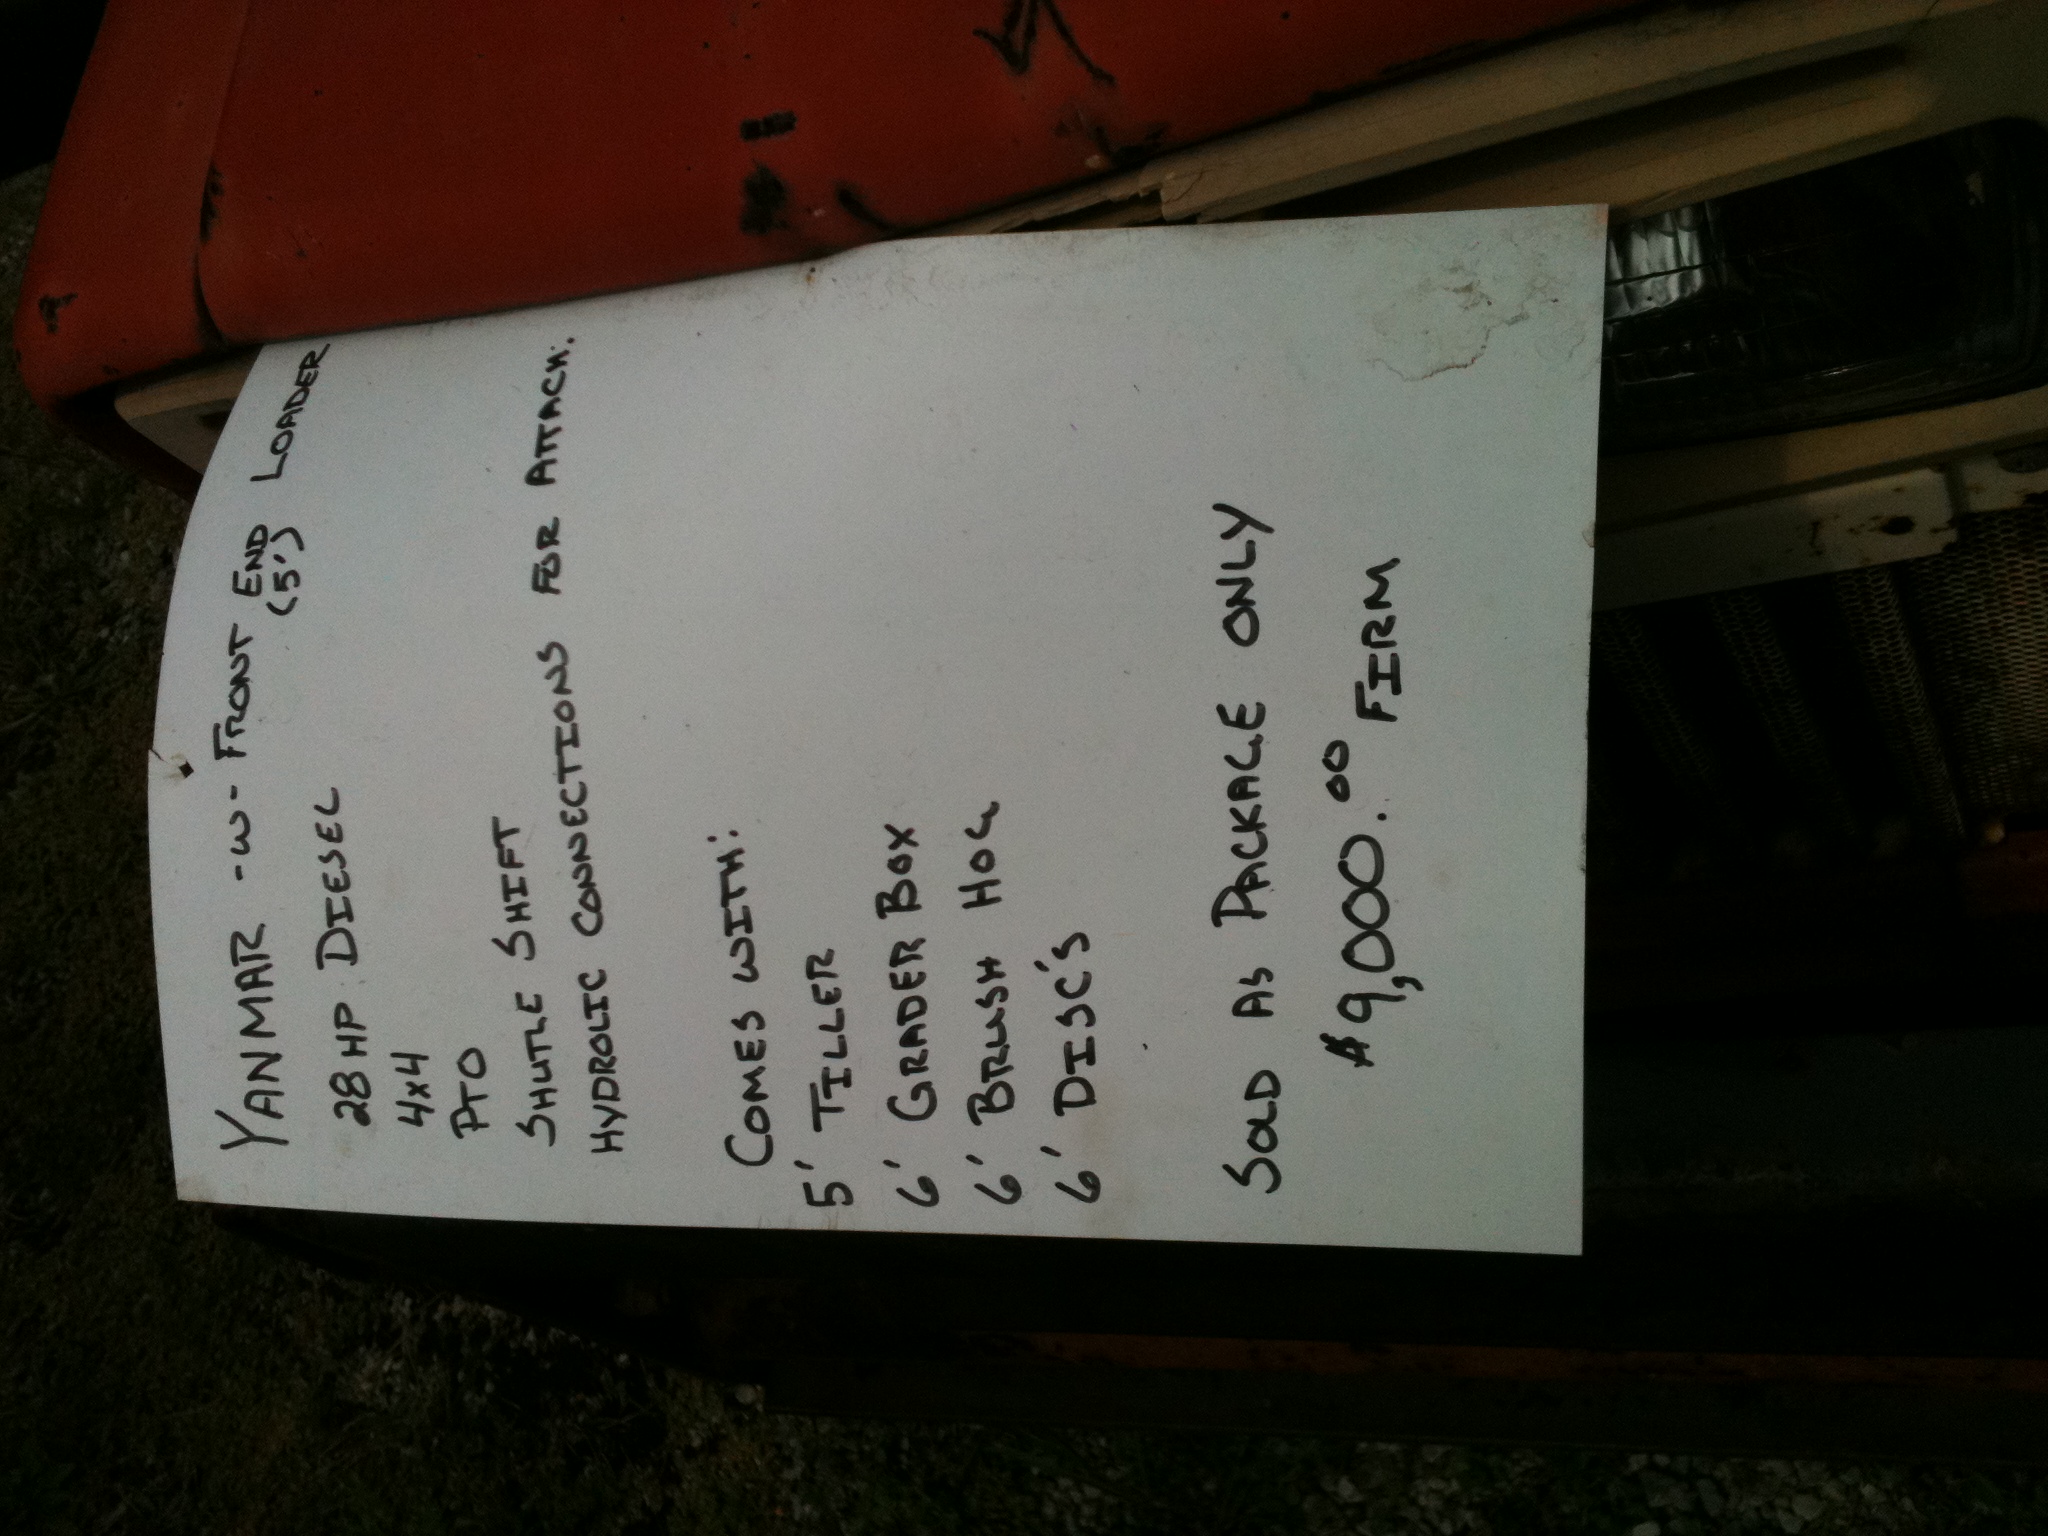 YANMAR -W- FRONT END LOADER
(5')
28 HP DIESEL
4x4
PTO
SHUTLE SHIFT
HYDROLIC CONNECTIONS FOR ATTACH:
COMES WITH:
5' TILLER
6' GRADER BOX
6' BRUSH HOG
6' DISC'S
SOLD AS PACKAGE ONLY
$9,000.00 FIRM